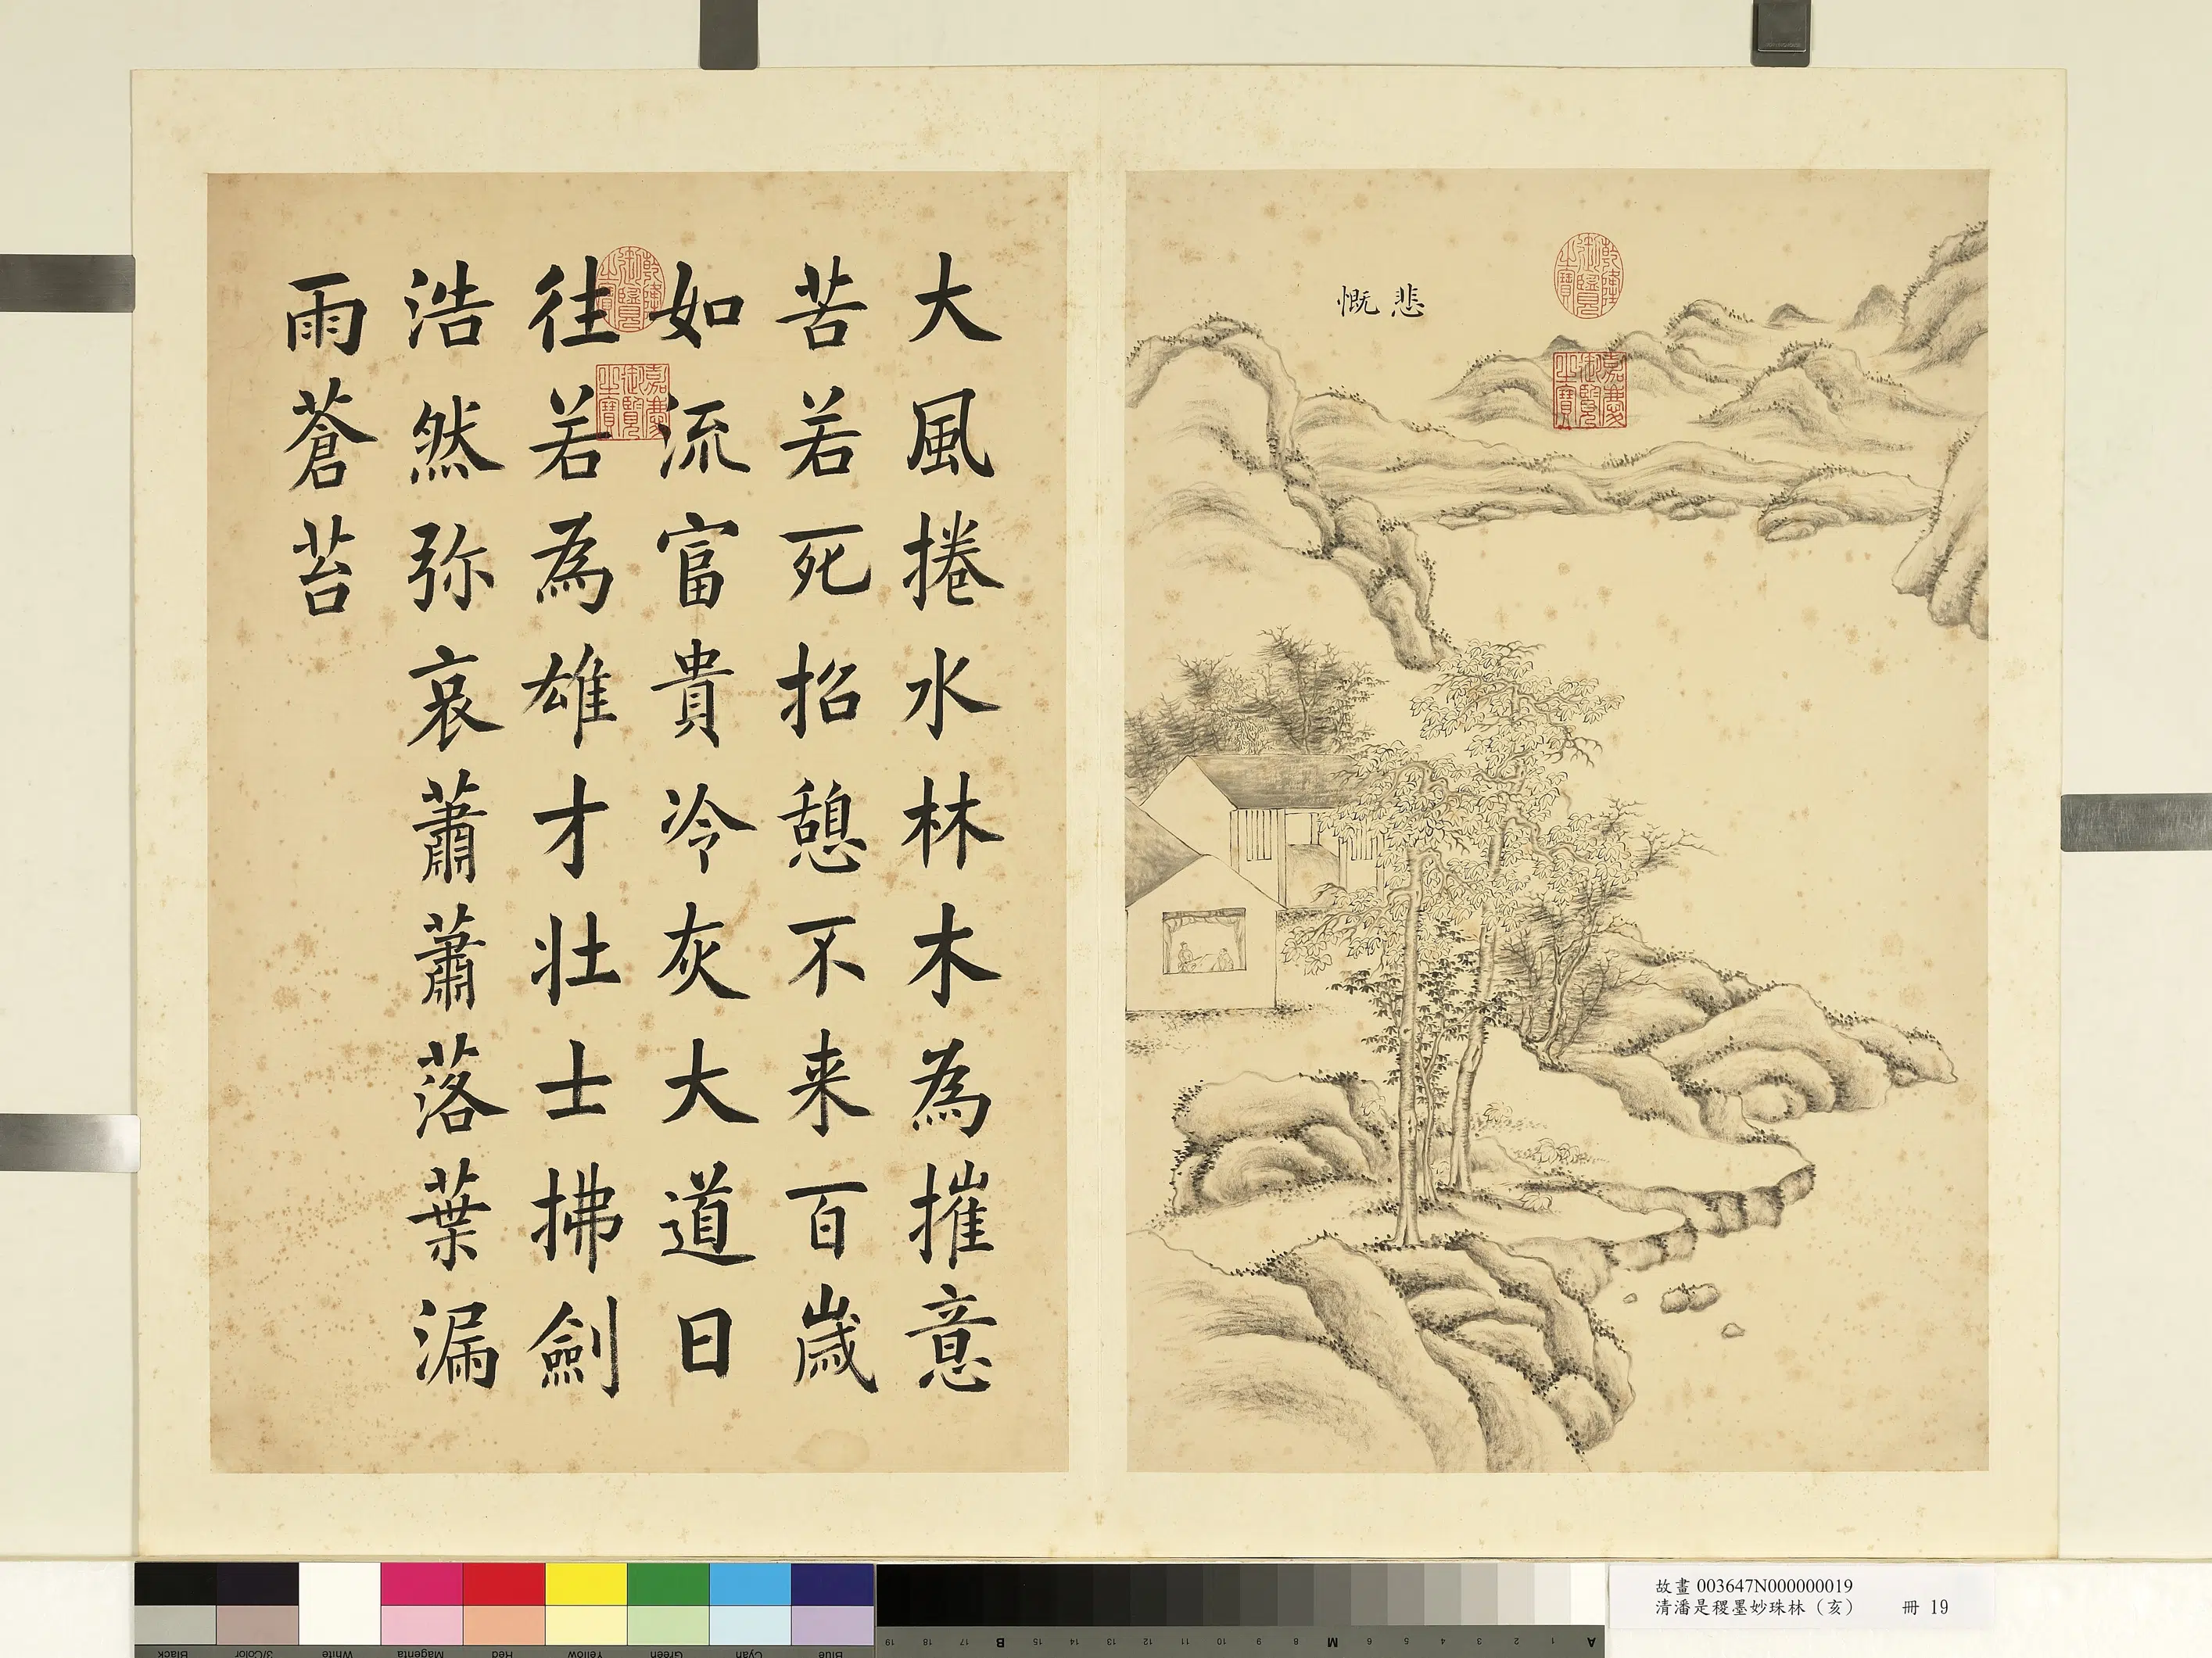 悲慨
乾隆御覽之寶
嘉慶御覽之寶
大風捲水林木為摧意
苦若死招憩不来百歲
如流富貴冷灰大道日
往若為雄才壯士拂劍
浩然弥哀蕭蕭落葉漏
雨蒼苔
乾隆御覽之寶
嘉慶御覽之寶
故畫 003647N000000019
清潘是稷墨妙珠林（亥） 冊 19
Black 3/Color White Magenta Red Yellow Green Cyan Blue
19 18 17 B 15 14 13 12 11 10 9 8 M 6 5 4 3 2 1 A